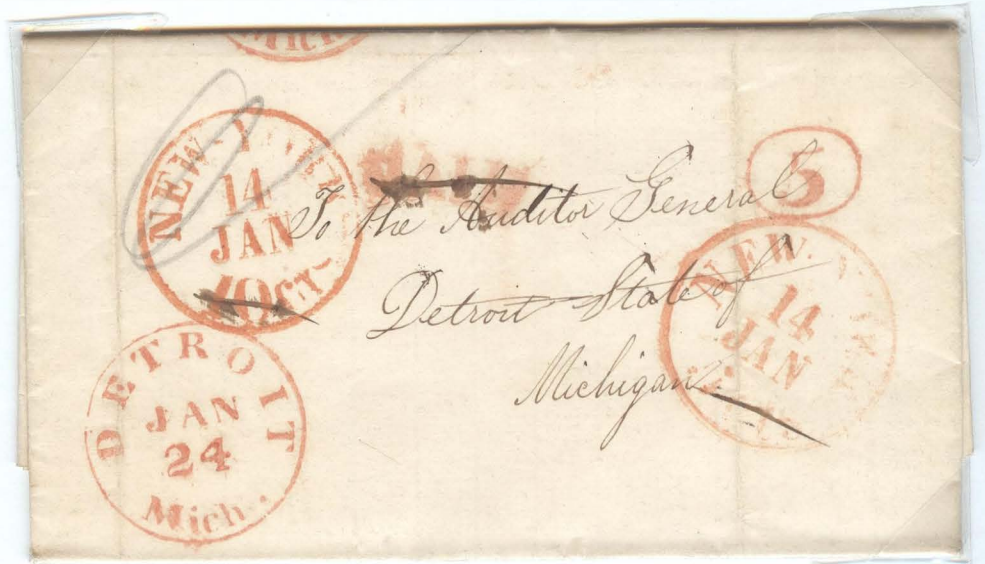 Mich.
NEW-YORK
14
JAN
10 CT
5
To the Auditor General
Detroit State of
Michigan
NEW-YORK
14
JAN
DETROIT
JAN
24
Mich.